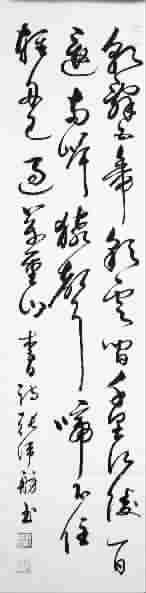 朝辭白帝彩雲間千里江陵一日
還兩岸猿聲啼不住
輕舟已過萬重山 李白詩 張 書